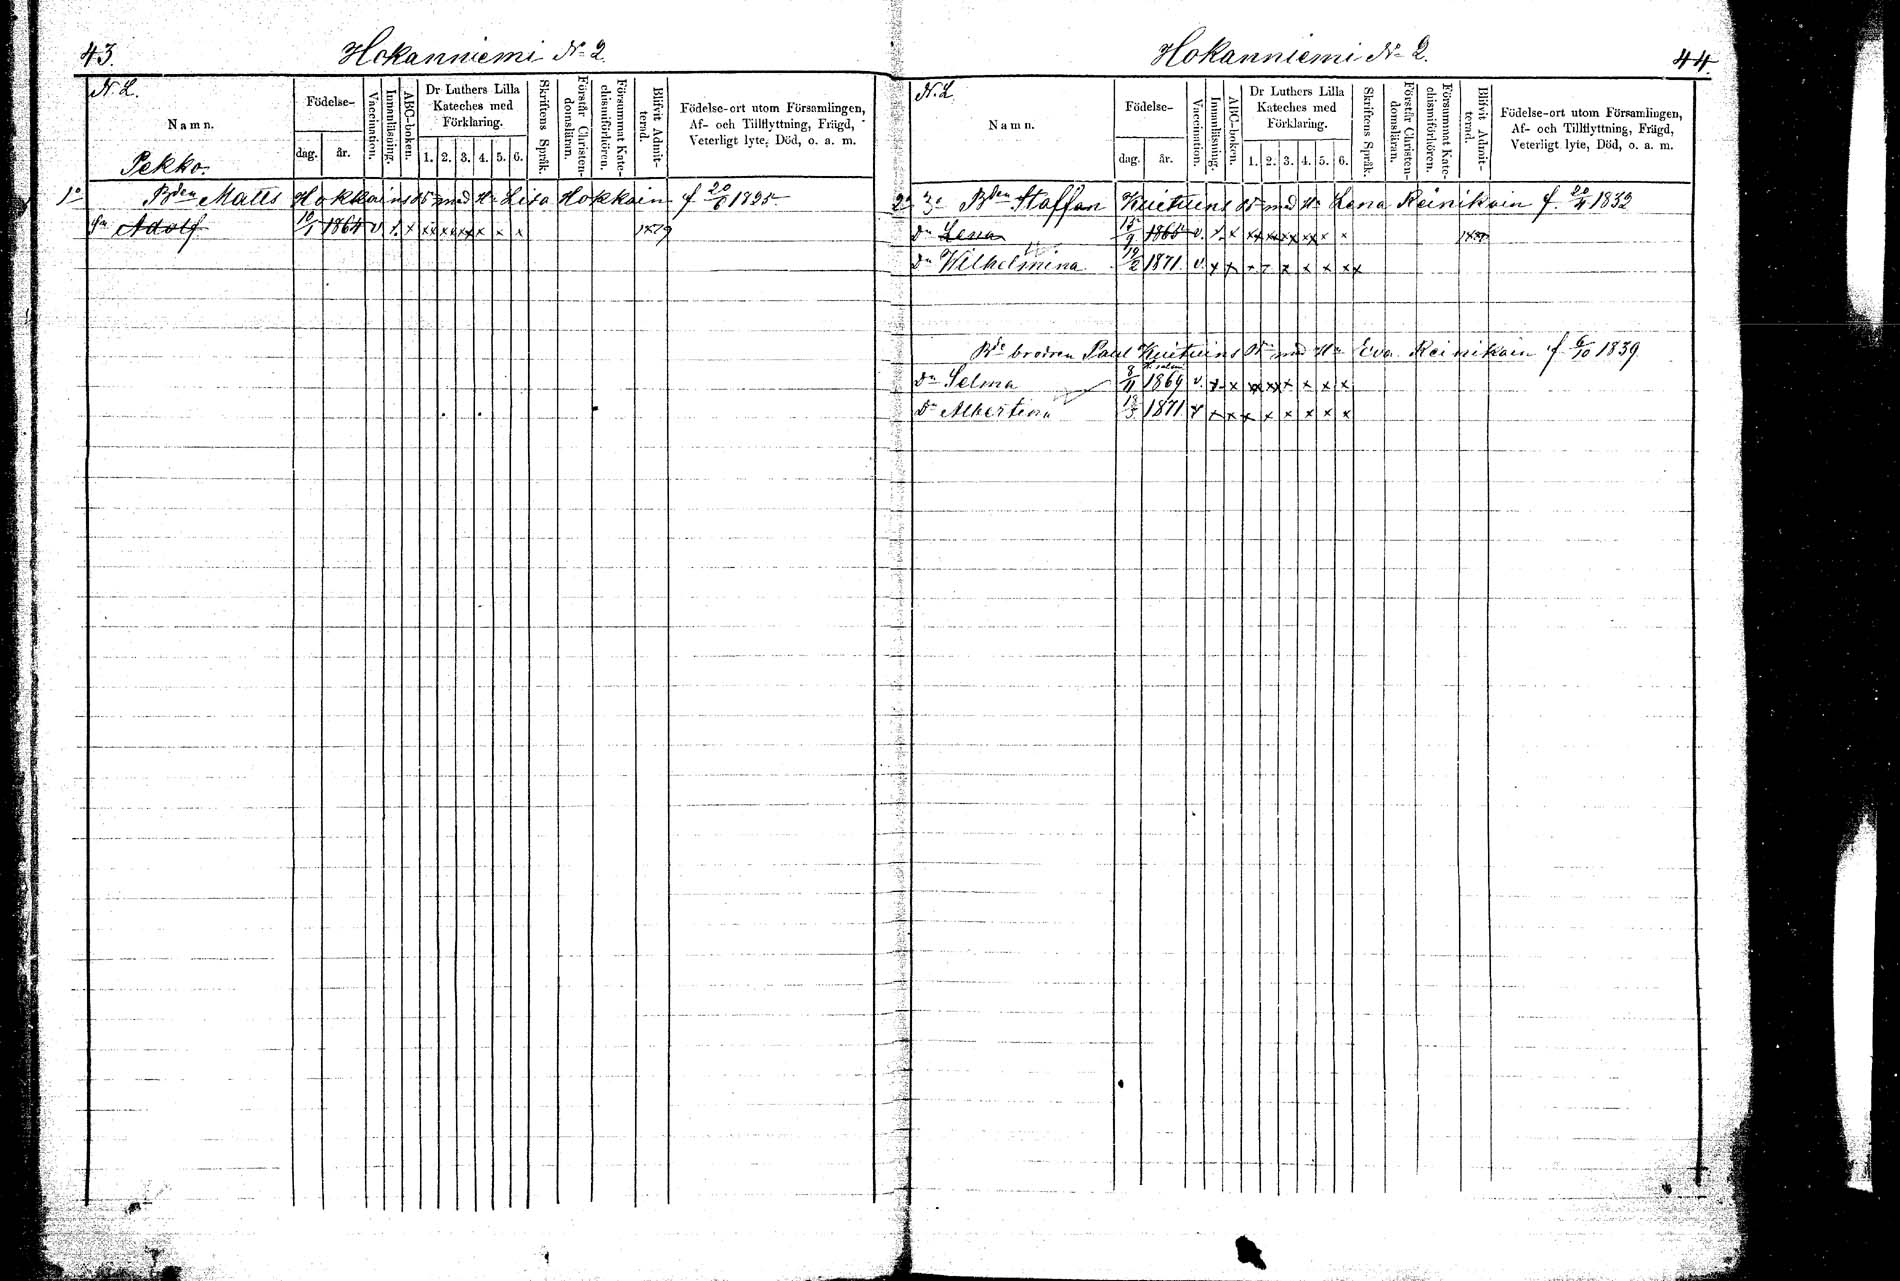 43.
Hokanniemi No 2.
N. L.
Namn.
Födelse-
dag. år.
Vaccination.
Innanläsning.
ABC-boken.
Dr Luthers Lilla Kateches med Förklaring.
1. 2. 3. 4. 5. 6.
Skriftens Språk.
Förstår Christen-domsläran.
Försummat Kate-chismiförhören.
Blifvit Admit-terad.
Födelse-ort utom Församlingen,
Af- och Tillflyttning, Frägd,
Veterligt lyte, Död, o. a. m.
Pekko.
1o Bden Matts Hokkains Bn med Hu Lisa Hokkain f 20/6 1825
Sn Adolf 10/1 1864 v. x. x xx xx xx x x x 1879
Hokanniemi No 2.
44.
N. L.
Namn.
Födelse-
dag. år.
Vaccination.
Innanläsning.
ABC-boken.
Dr Luthers Lilla Kateches med Förklaring.
1. 2. 3. 4. 5. 6.
Skriftens Språk.
Förstår Christen-domsläran.
Försummat Kate-chismiförhören.
Blifvit Admit-terad.
Födelse-ort utom Församlingen,
Af- och Tillflyttning, Frägd,
Veterligt lyte, Död, o. a. m.
2o 3o Bden Staffan Kuituins Bn med Hu Lena Reinikain f. 20/11 1832
Dr Lena 15/9 1865 v. x. x xx xx xx xx x x
Dr Wilhelmina 19/2 1871. v. x x x x x x x xx
Bde brodren Paul Kuituins Bn med Hu Eva Reinikain f 6/10 1839
Dr Selma 8/11 1869 v. x x xx xx x x x x
Dr Albertina 18/5 1871. v x x x x x x x x